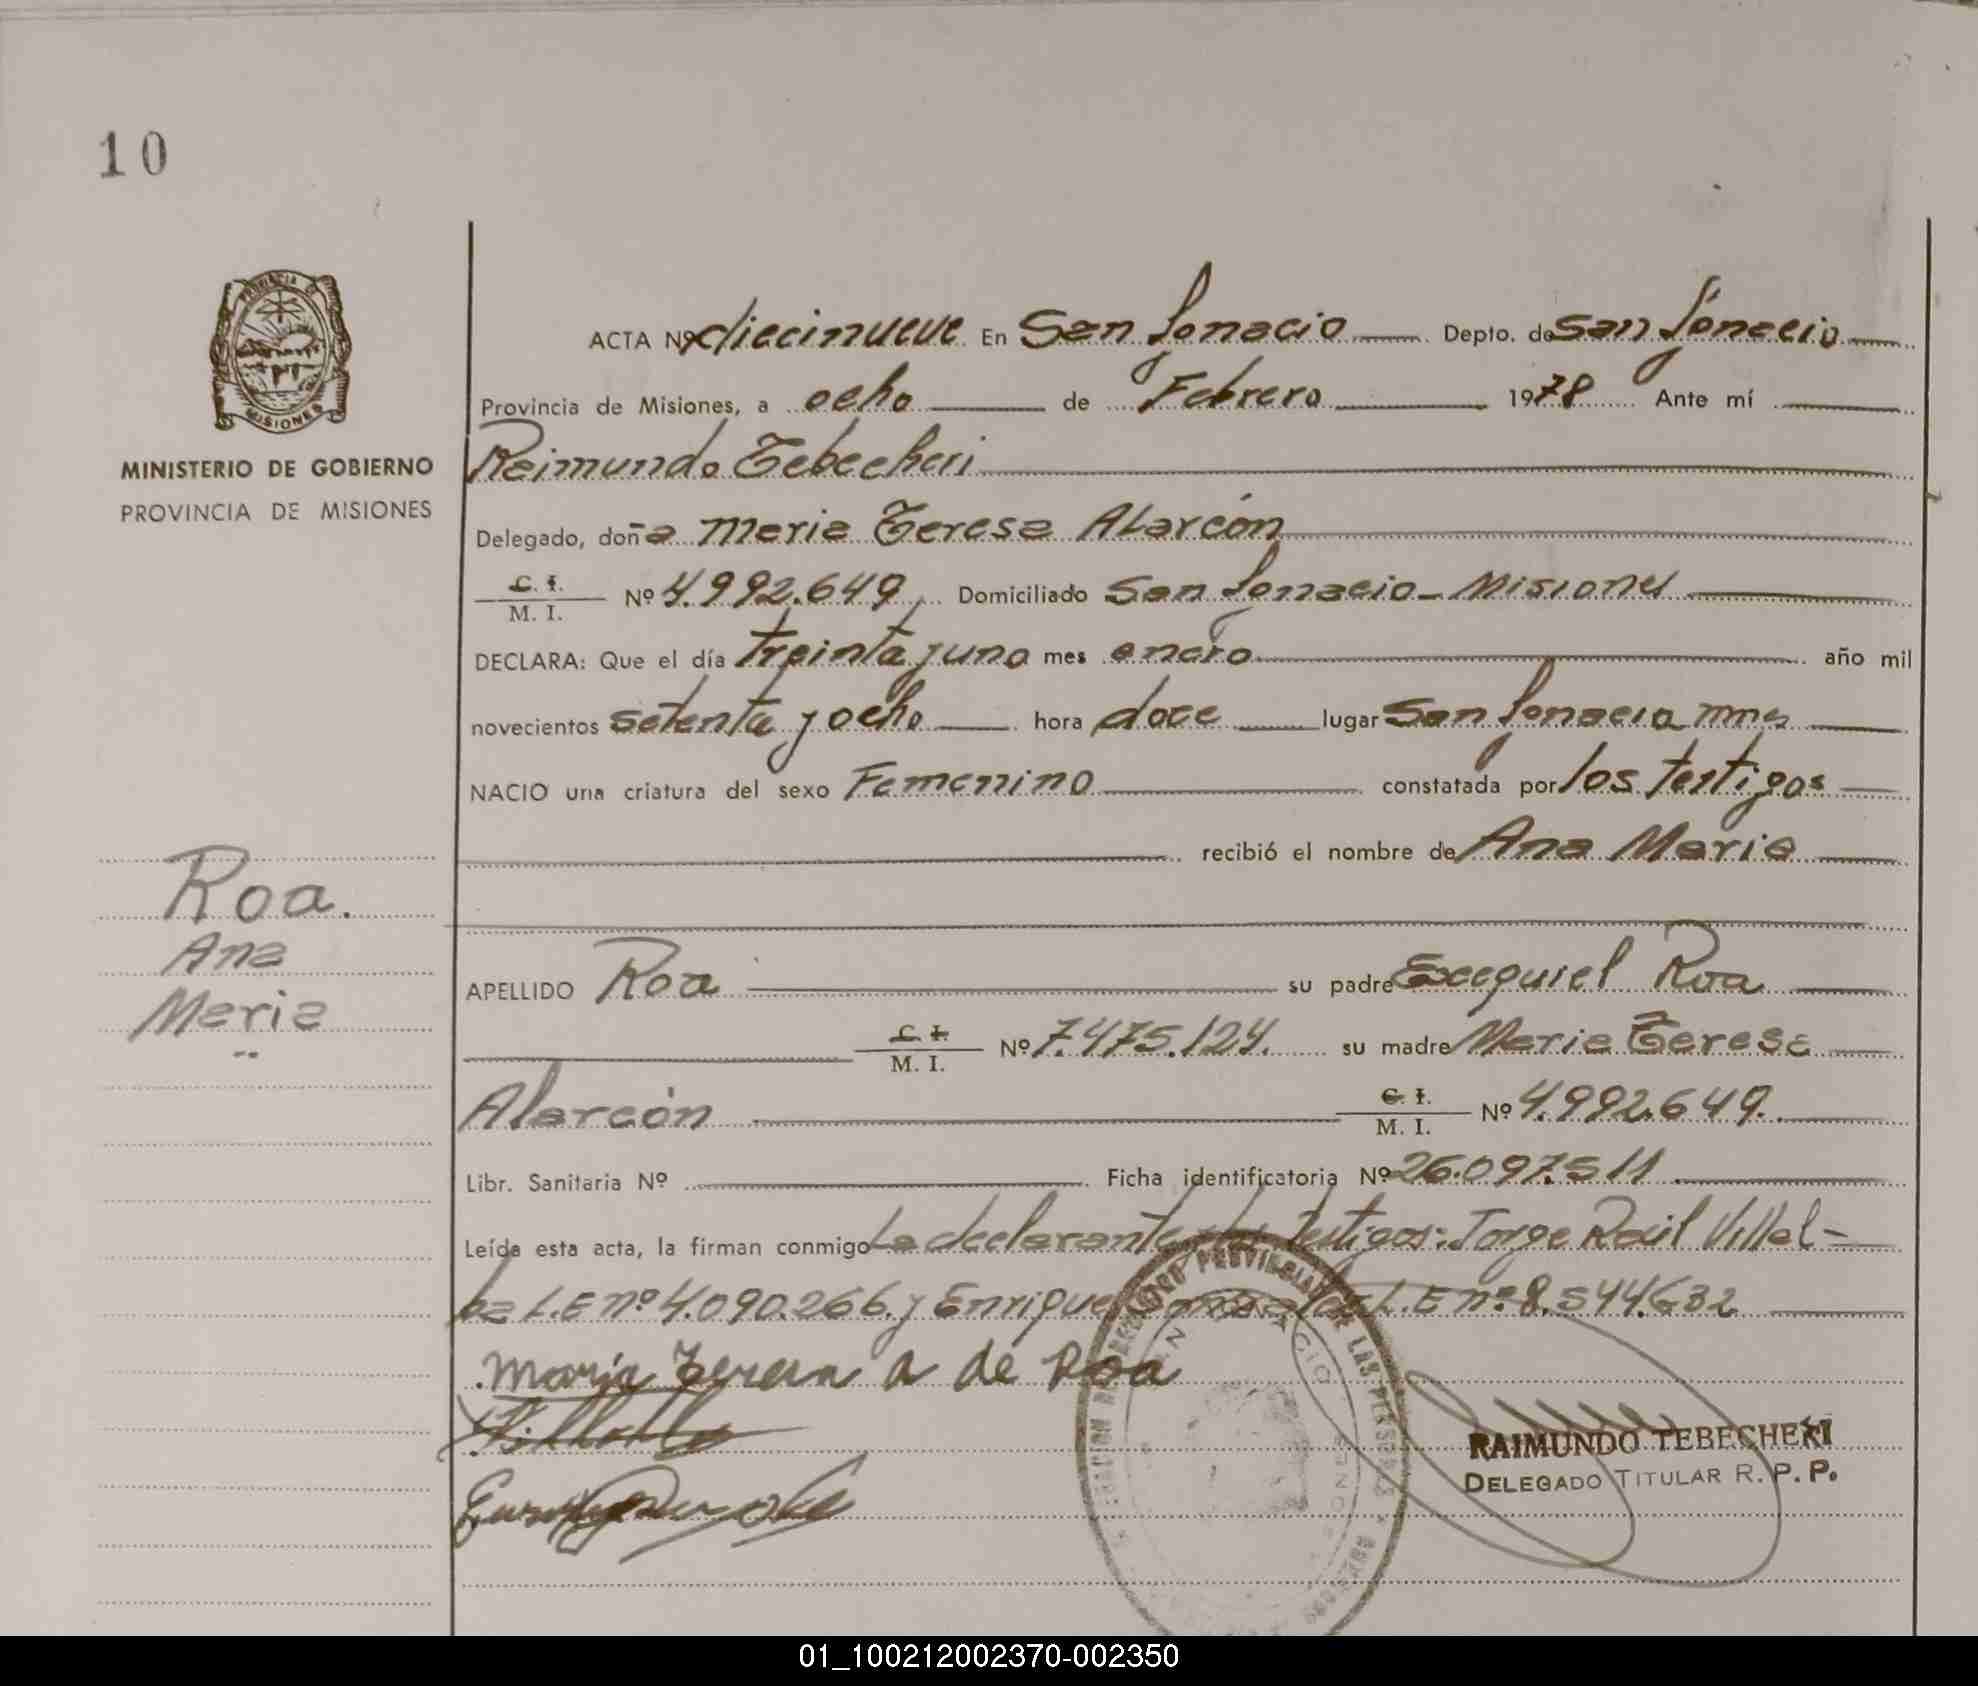 10
PROVINCIA DE
MISIONES
MINISTERIO DE GOBIERNO
PROVINCIA DE MISIONES
ACTA Nº diecinueve En San Ignacio Depto. de San Ignacio
Provincia de Misiones, a ocho de Febrero 1978 Ante mí
Raimundo Tebecheri
Delegado, doña Maria Teresa Alarcón
C. I.
M. I. Nº 4.992.649 Domiciliado San Ignacio - Misiones
DECLARA: Que el día treinta y uno mes enero año mil
novecientos setenta y ocho hora doce lugar San Ignacio Mnes
NACIO una criatura del sexo Femenino constatada por los testigos
recibió el nombre de Ana Maria
Roa.
Ana
Maria
APELLIDO Roa su padre Exequiel Roa
C. I.
M. I. Nº 7.475.124. su madre Maria Teresa
Alarcón C. I.
M. I. Nº 4.992.649.
Libr. Sanitaria Nº Ficha identificatoria Nº 26.097.511
Leída esta acta, la firman conmigo La declarante y los testigos: Jorge Raúl Villal-
ba L.E nº 4.090.266. y Enrique L.E nº 8.544.632
María Teresa A de Roa
RAIMUNDO TEBECHERI
DELEGADO TITULAR R. P. P.
01_100212002370-002350